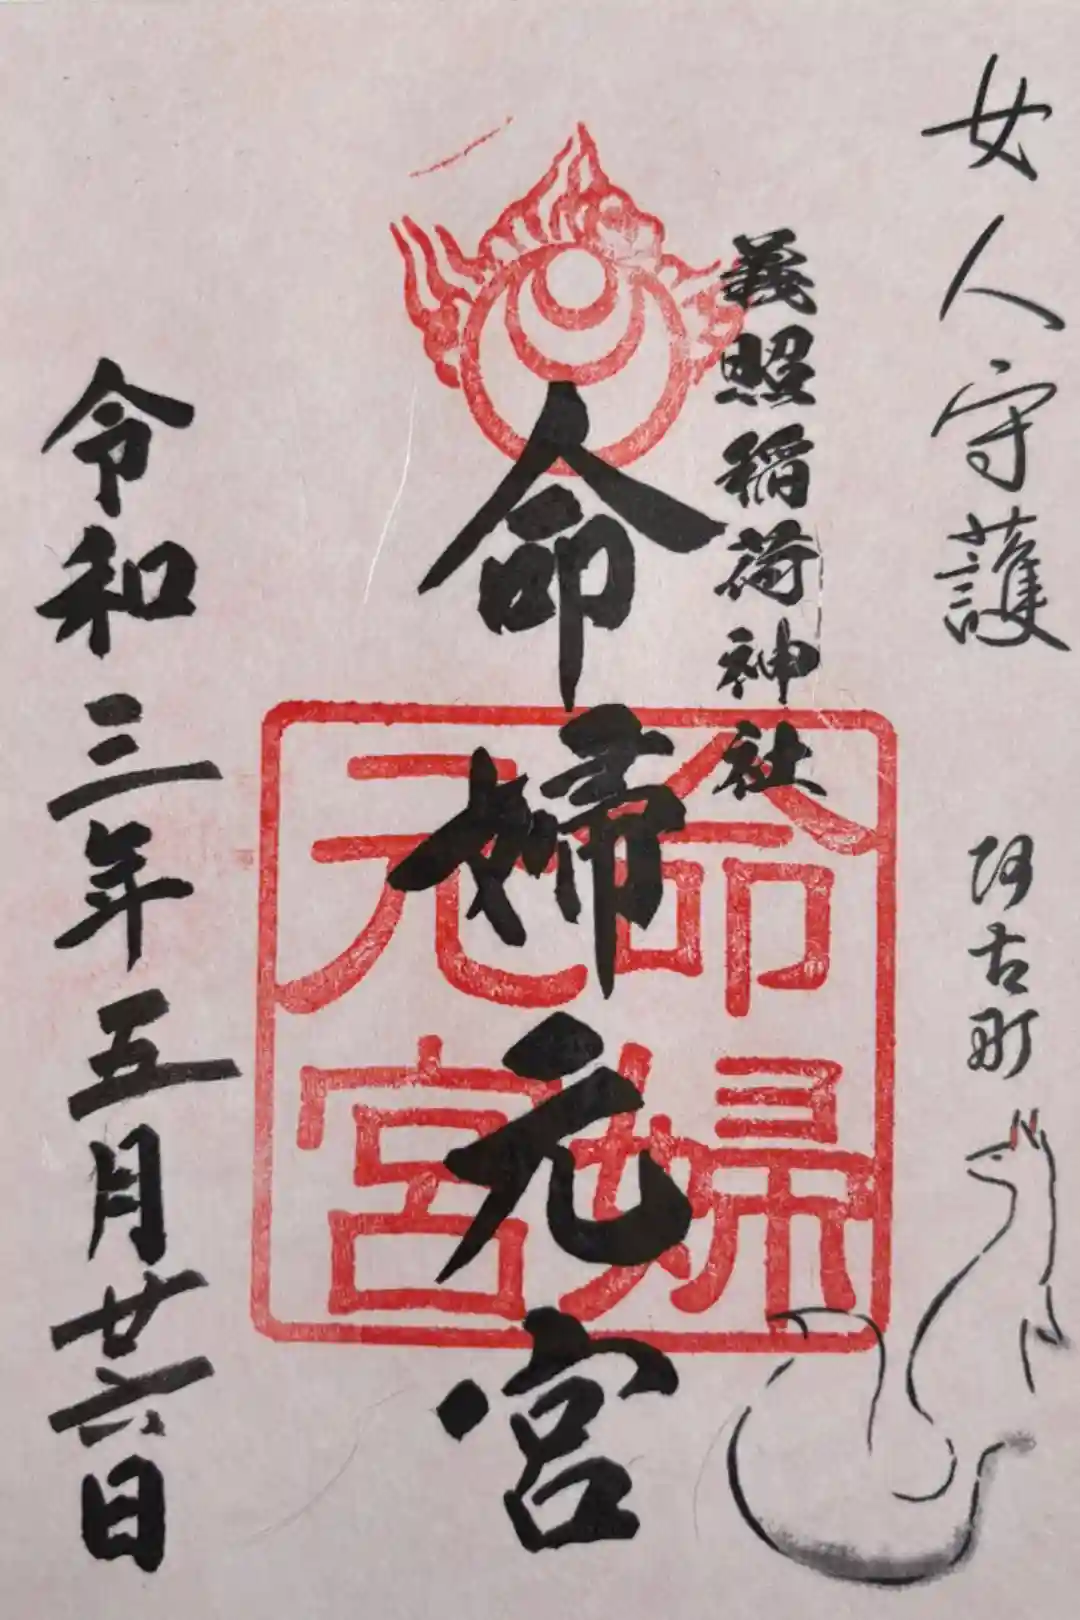 女人守護
阿古町
義照稲荷神社
命婦元宮
命婦元宮
令和三年五月廿六日